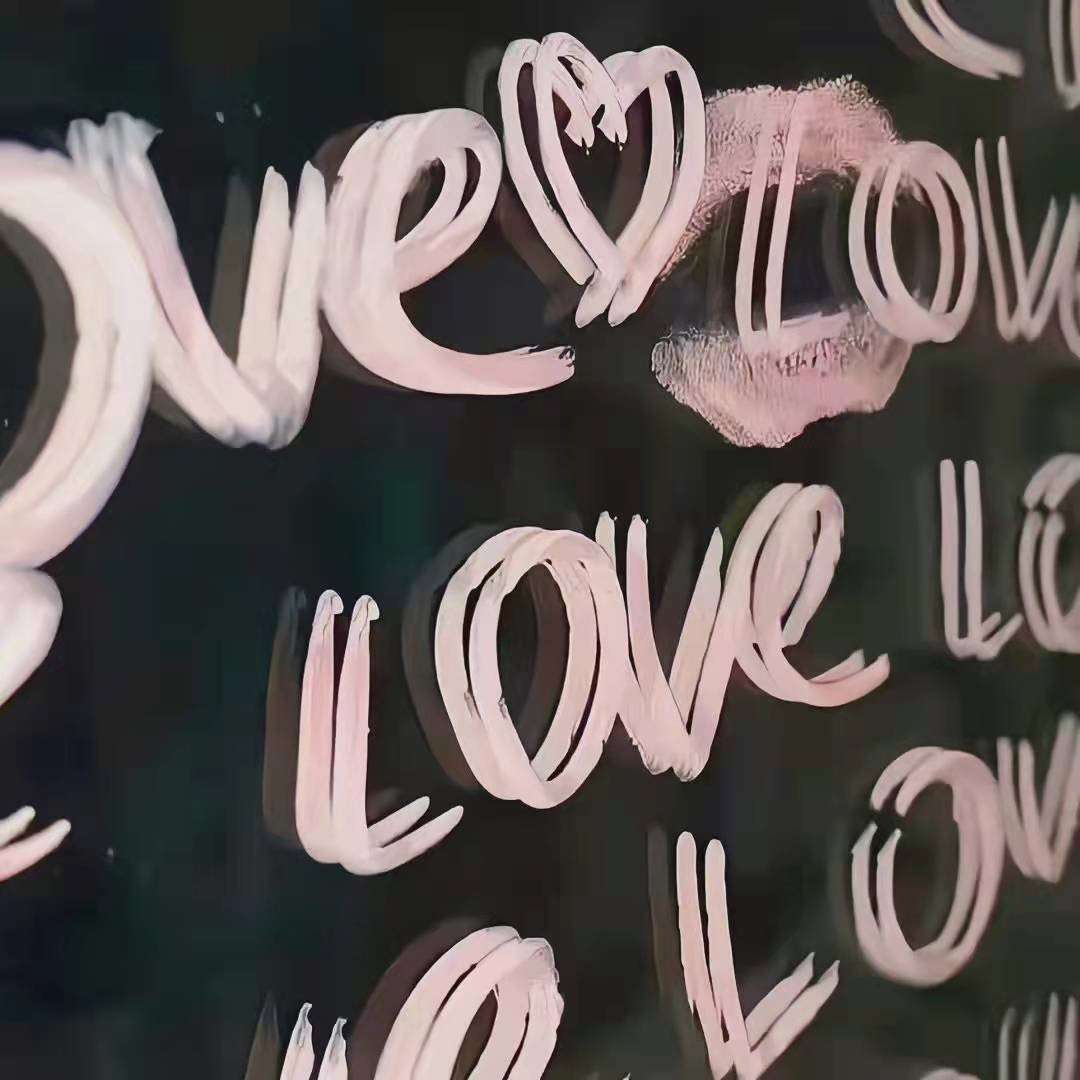 ove ♡ Love
Love Lo
Lov
Lo